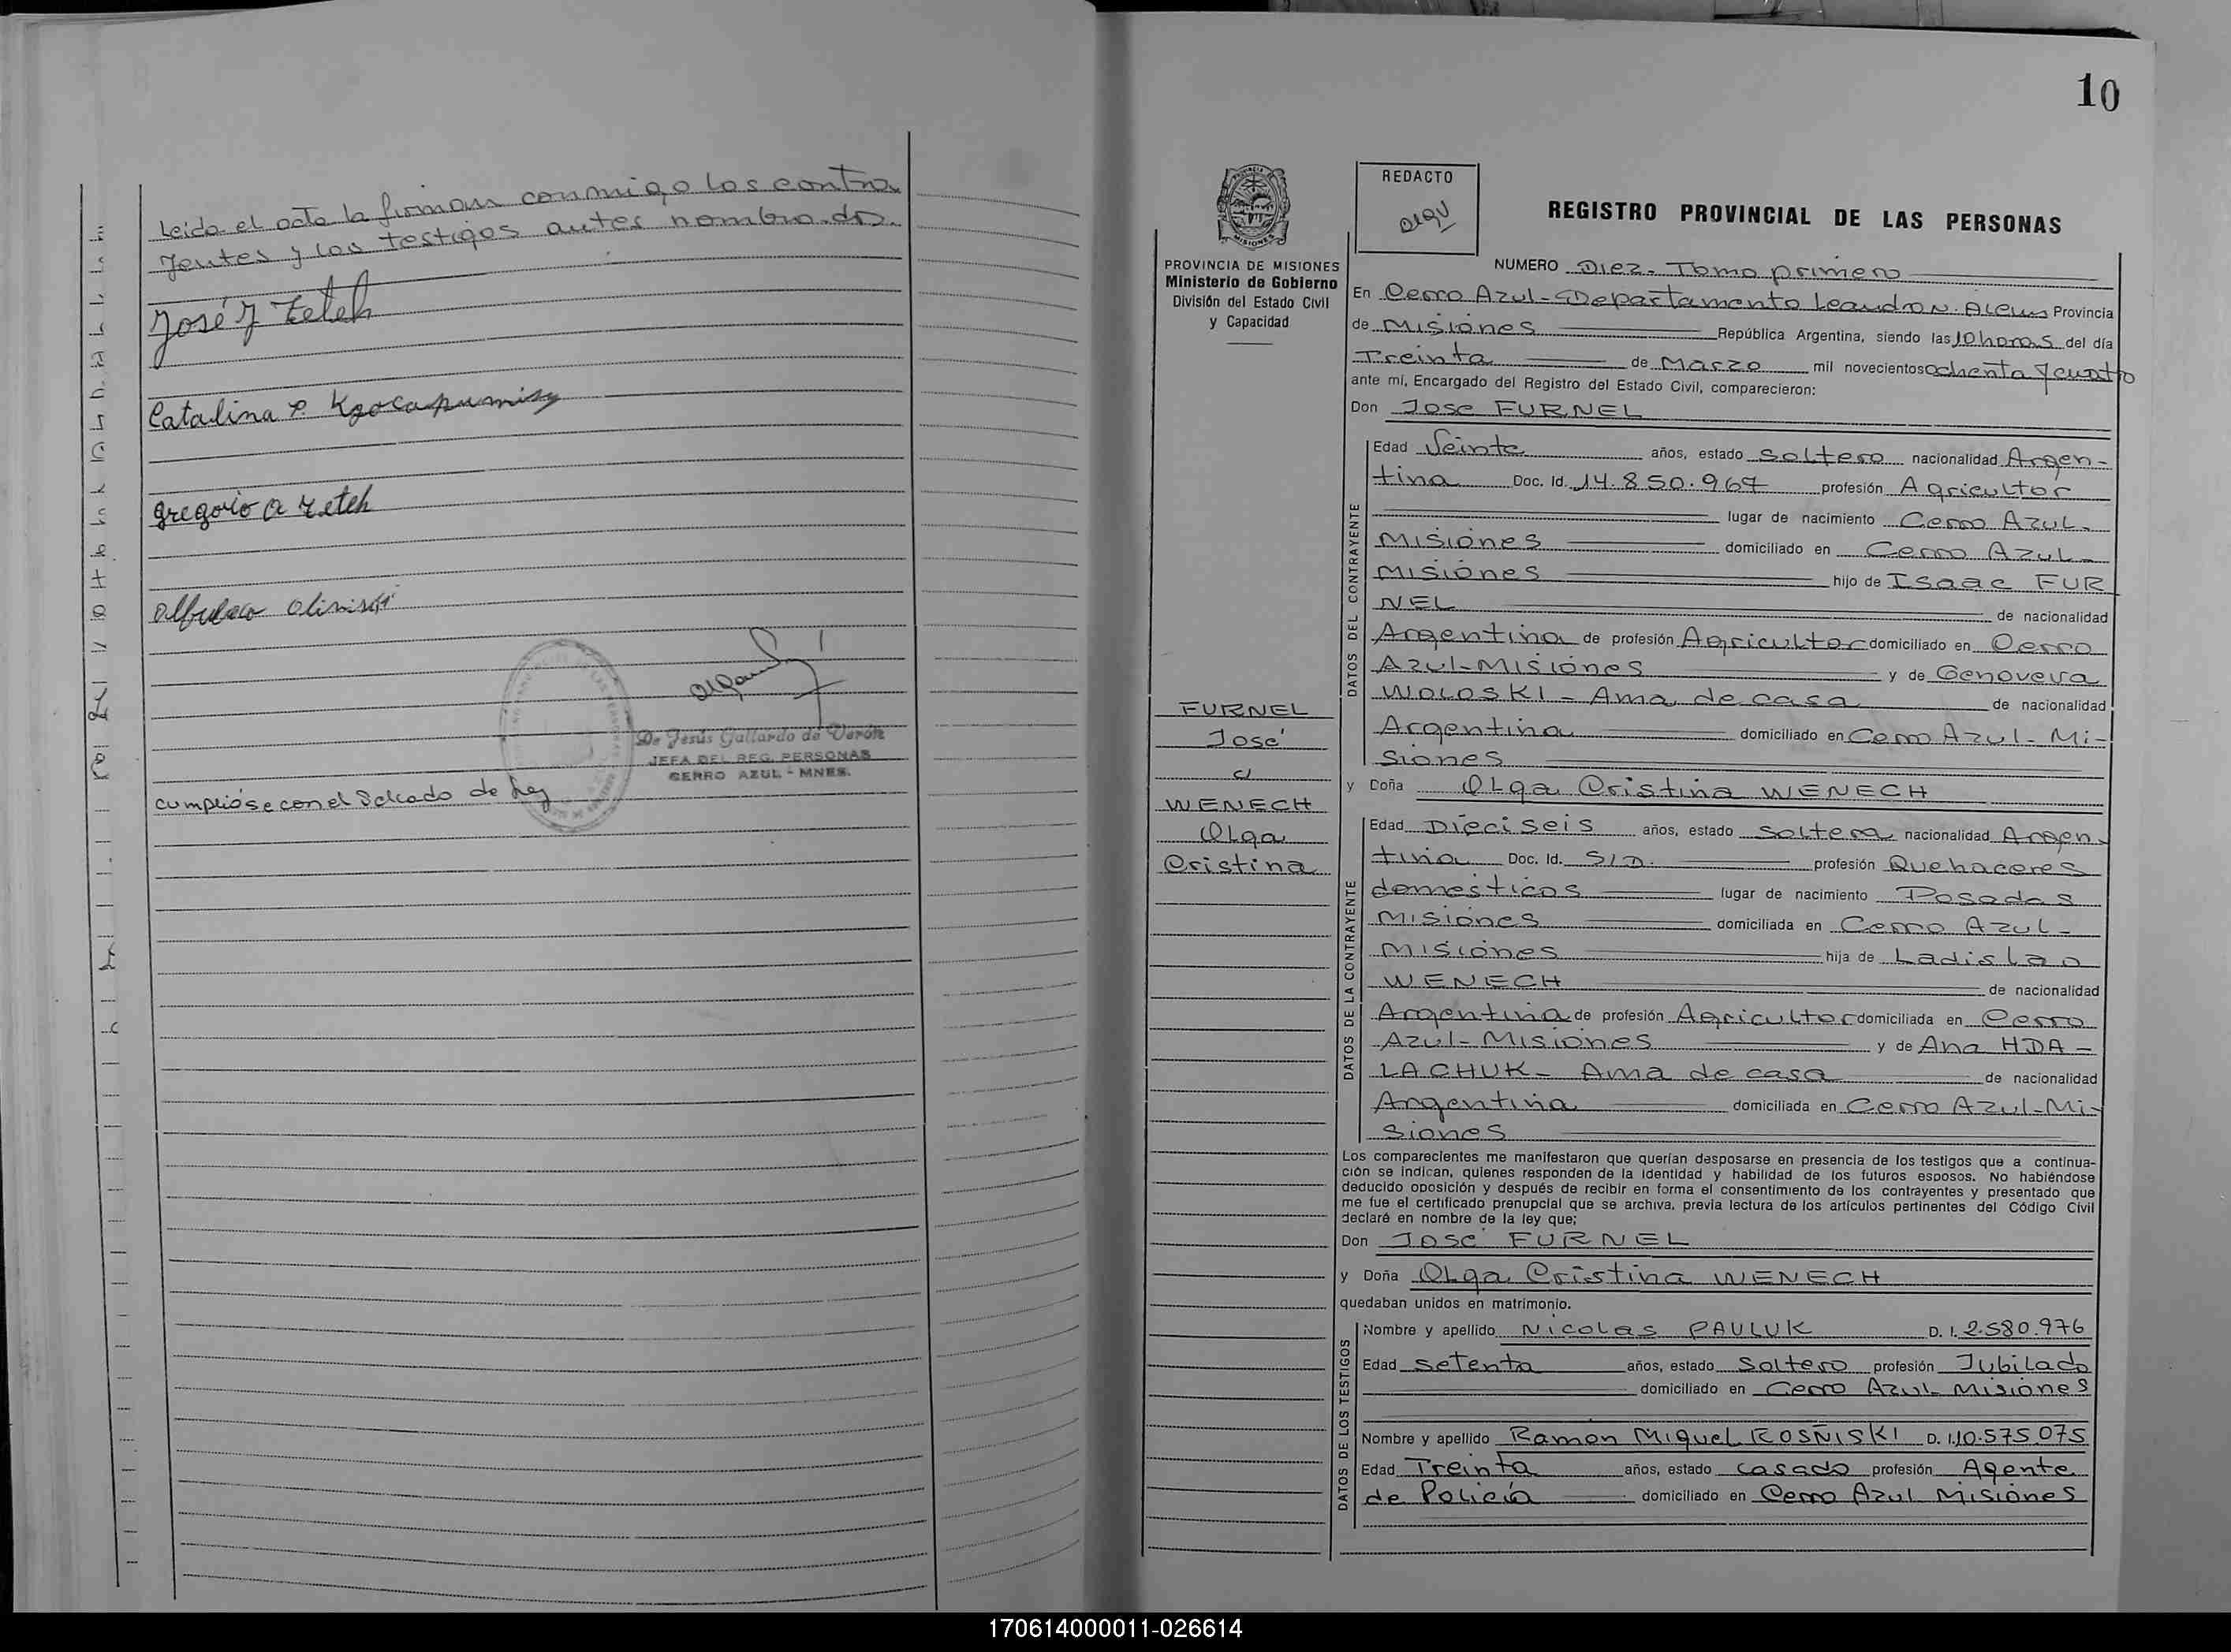 Leida el acta la firman conmigo los contra
yentes y los testigos antes nombrados.
José J Zeteh
Catalina
Gregorio A Zeteh
De Jesús Gallardo de Verón
JEFA DEL REG. PERSONAS
CERRO AZUL - MNES.
cumplióse con el Sellado de Ley
10
REDACTO
REGISTRO PROVINCIAL DE LAS PERSONAS
PROVINCIA DE MISIONES
Ministerio de Gobierno
División del Estado Civil
y Capacidad
FURNEL
José
c/
WENECH
Olga
Cristina
NUMERO Diez - Tomo primero
En Cerro Azul - Departamento Leandro N. Alem Provincia
de Misiones República Argentina, siendo las 10 horas del día
Treinta de Marzo mil novecientos ochenta y cuatro
ante mí, Encargado del Registro del Estado Civil, comparecieron:
Don Jose FURNEL
DATOS DEL CONTRAYENTE
Edad Veinte años, estado soltero nacionalidad Argen-
tina Doc. Id. 14.850.967 profesión Agricultor
lugar de nacimiento Cerro Azul-
Misiones domiciliado en Cerro Azul-
Misiones hijo de Isaac FUR
NEL de nacionalidad
Argentina de profesión Agricultor domiciliado en Cerro
Azul-Misiones y de Genoveva
WOLOSKI - Ama de casa de nacionalidad
Argentina domiciliado en Cerro Azul - Mi-
siones
y Doña Olga Cristina WENECH
DATOS DE LA CONTRAYENTE
Edad Dieciseis años, estado soltera nacionalidad Argen-
tina Doc. Id. S/D. profesión Quehaceres
domésticos lugar de nacimiento Posadas
Misiones domiciliada en Cerro Azul-
Misiones hija de Ladislao
WENECH de nacionalidad
Argentina de profesión Agricultor domiciliada en Cerro
Azul-Misiones y de Ana HDA-
LACHUK- Ama de casa de nacionalidad
Argentina domiciliada en Cerro Azul-Mi-
siones
Los comparecientes me manifestaron que querían desposarse en presencia de los testigos que a continua-
ción se indican, quienes responden de la identidad y habilidad de los futuros esposos. No habiéndose
deducido oposición y después de recibir en forma el consentimiento de los contrayentes y presentado que
me fue el certificado prenupcial que se archiva, previa lectura de los artículos pertinentes del Código Civil
declaré en nombre de la ley que;
Don José FURNEL
y Doña Olga Cristina WENECH
quedaban unidos en matrimonio.
DATOS DE LOS TESTIGOS
Nombre y apellido Nicolas PAULUK D. I. 2.580.976
Edad setenta años, estado Soltero profesión Jubilado
domiciliado en Cerro Azul Misiones
Nombre y apellido Ramon Miguel ROSÑISKI D. I. 10.575.075
Edad Treinta años, estado casado profesión Agente
de Policía domiciliado en Cerro Azul Misiones
170614000011-026614